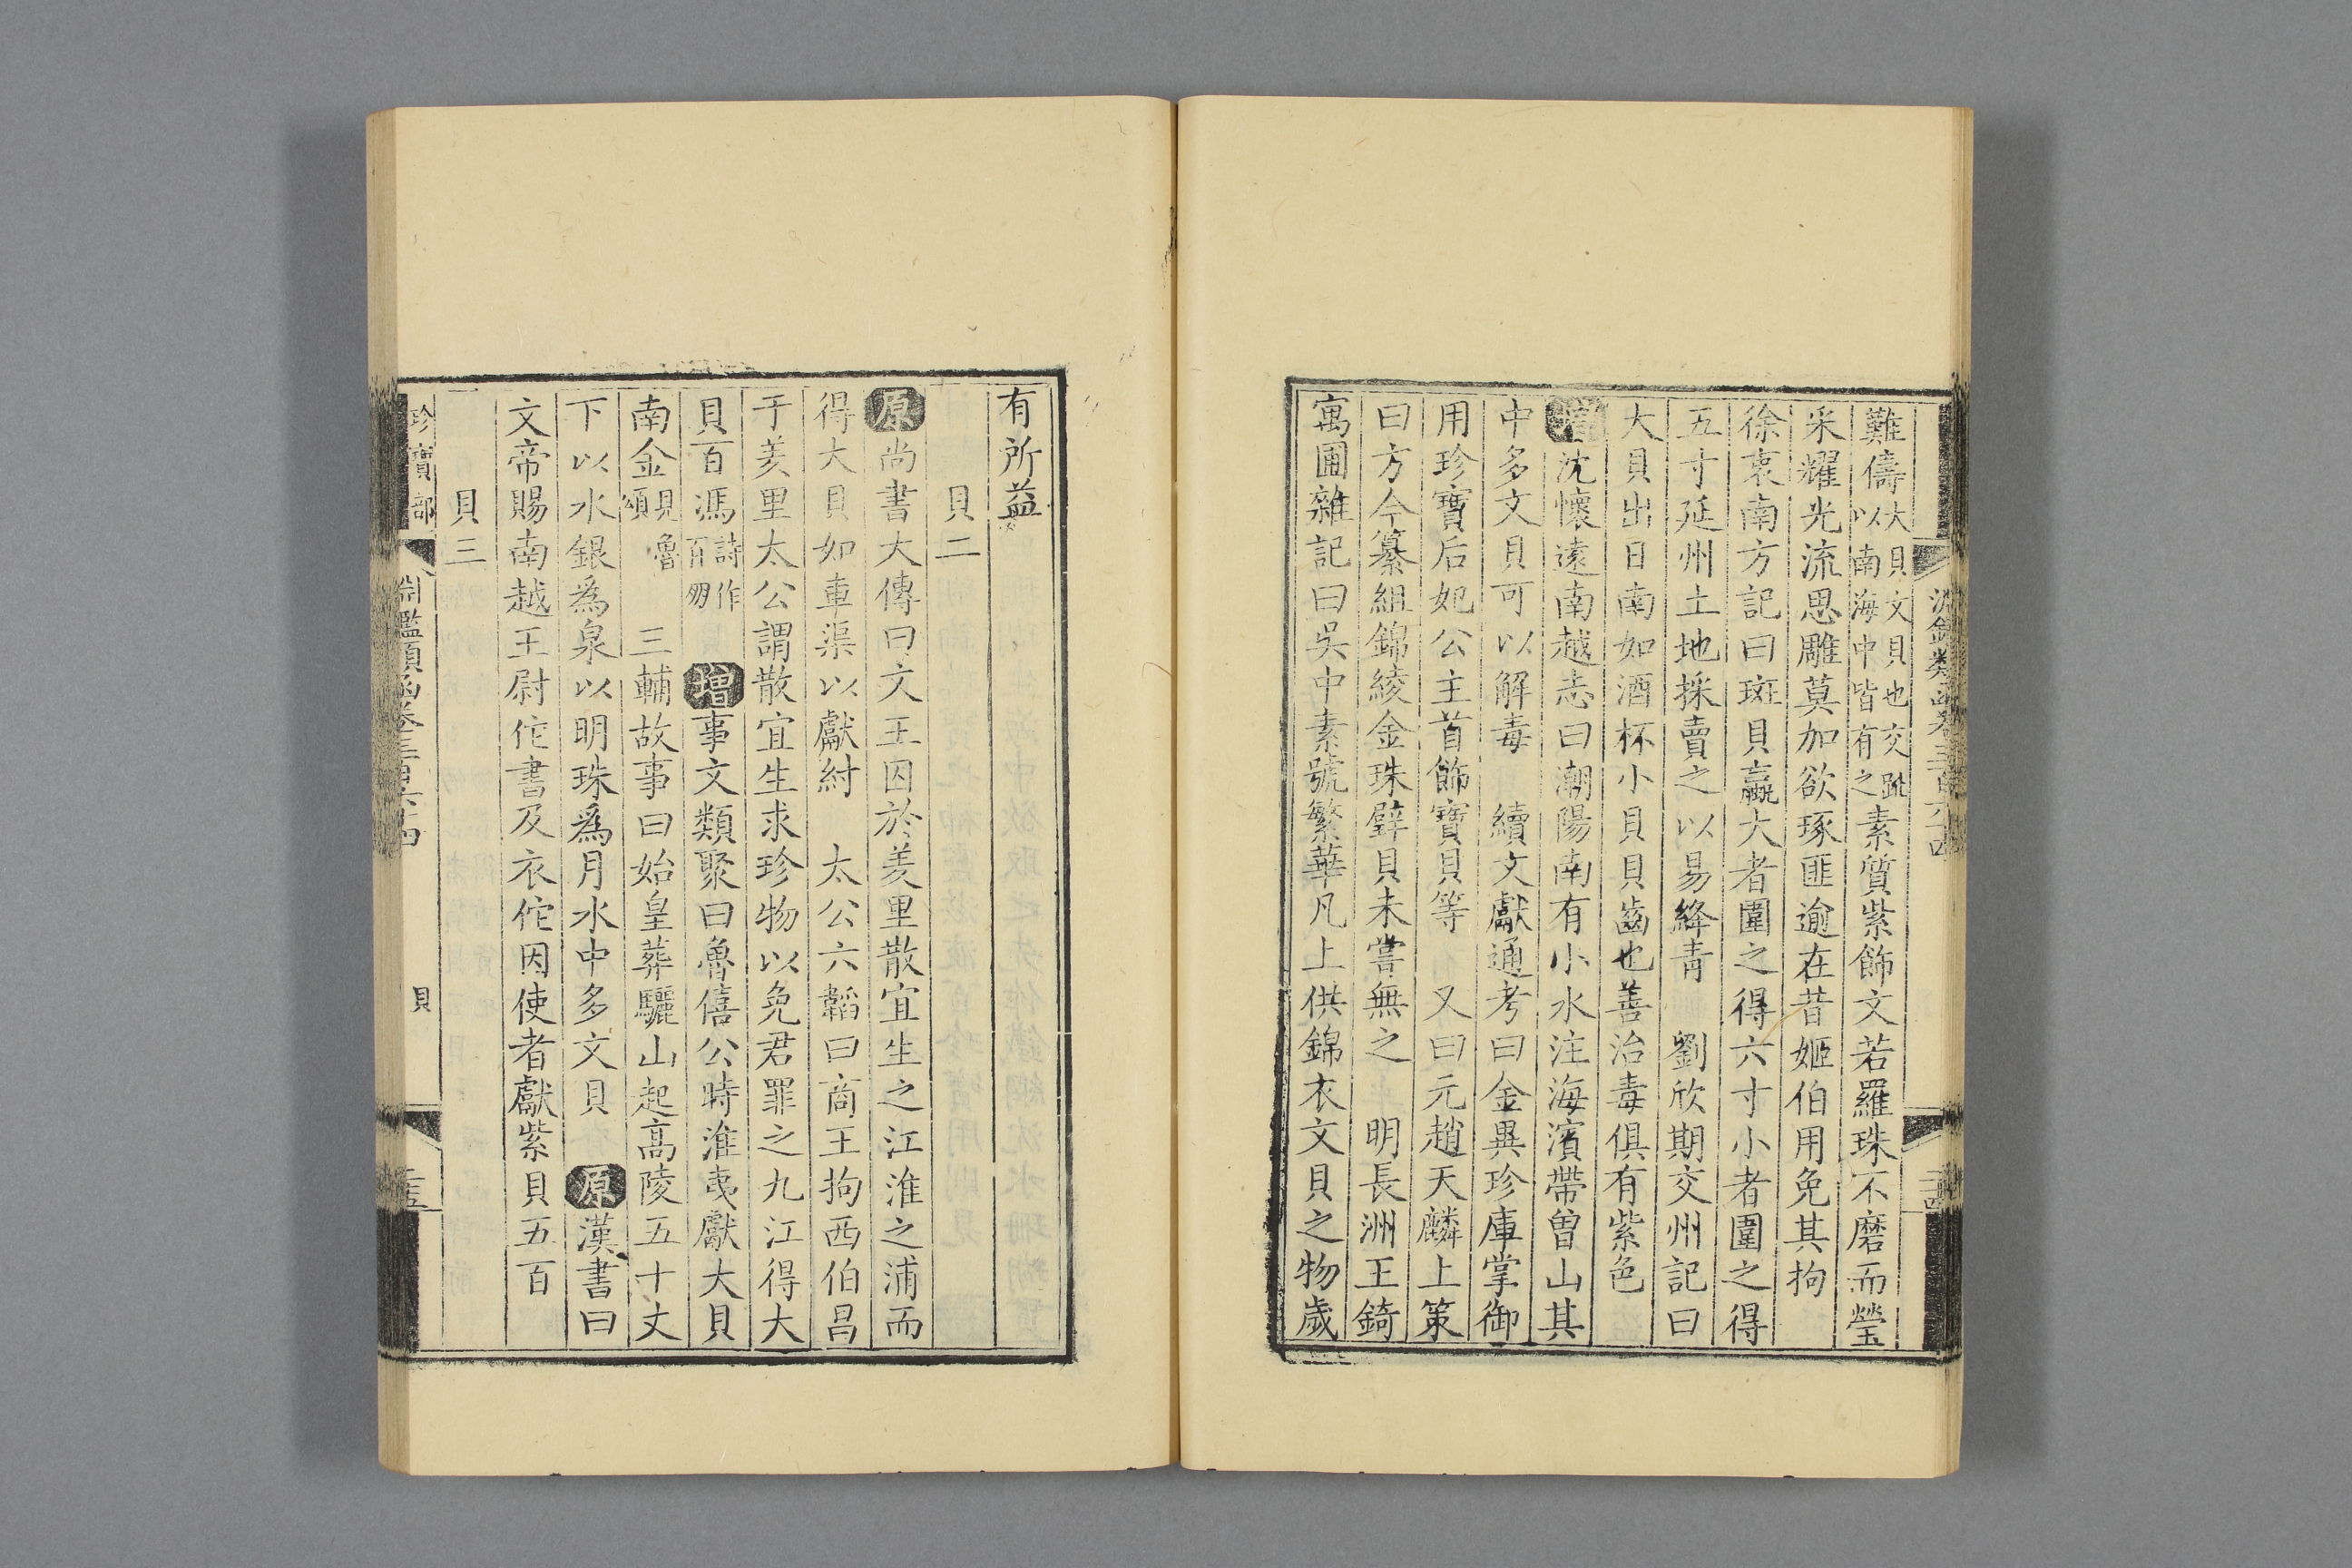 難儔大貝文貝也交趾以南海中皆有之素質紫飾文若羅珠不磨而瑩
采耀光流思雕莫加欲琢匪逾在昔姬伯用免其拘
徐衷南方記曰斑貝蠃大者圍之得六寸小者圍之得
五寸延州土地採賣之以易絳青　劉欣期交州記曰
大貝出日南如酒杯小貝貝齒也善治毒俱有紫色
沈懷遠南越志曰潮陽南有小水注海濱帶曾山其
中多文貝可以解毒　續文獻通考曰金異珍庫掌御
用珍寶后妃公主首飾寶貝等　又曰元趙天麟上策
曰方今纂組錦綾金珠璧貝未嘗無之　明長洲王錡
寓圃雜記曰吳中素號繁華凡上供錦衣文貝之物歲
有所益
貝二
原尚書大傳曰文王囚於羑里散宜生之江淮之浦而
得大貝如車渠以獻紂　太公六韜曰商王拘西伯昌
于羑里太公謂散宜生求珍物以免君罪之九江得大
貝百馮詩作百朋　增事文類聚曰魯僖公時淮夷獻大貝
南金見魯頌　三輔故事曰始皇葬驪山起高陵五十丈
下以水銀爲泉以明珠爲月水中多文貝　原漢書曰
文帝賜南越王尉佗書及衣佗因使者獻紫貝五百
貝三
珍寶部　淵鑑類函卷三百六十四　貝